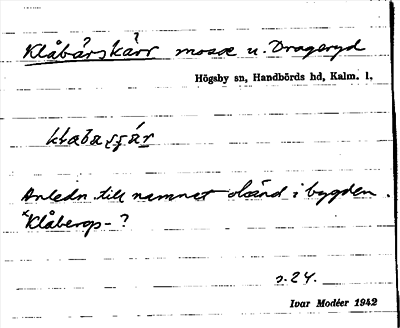 Klåbärskärr mosse u. Drageryd
Högsby sn, Handbörds hd, Kalm. l.
Anledn. till namnet okänd i bygden.
*Klåbergs- ?
s. 24.
Ivar Modéer 1942